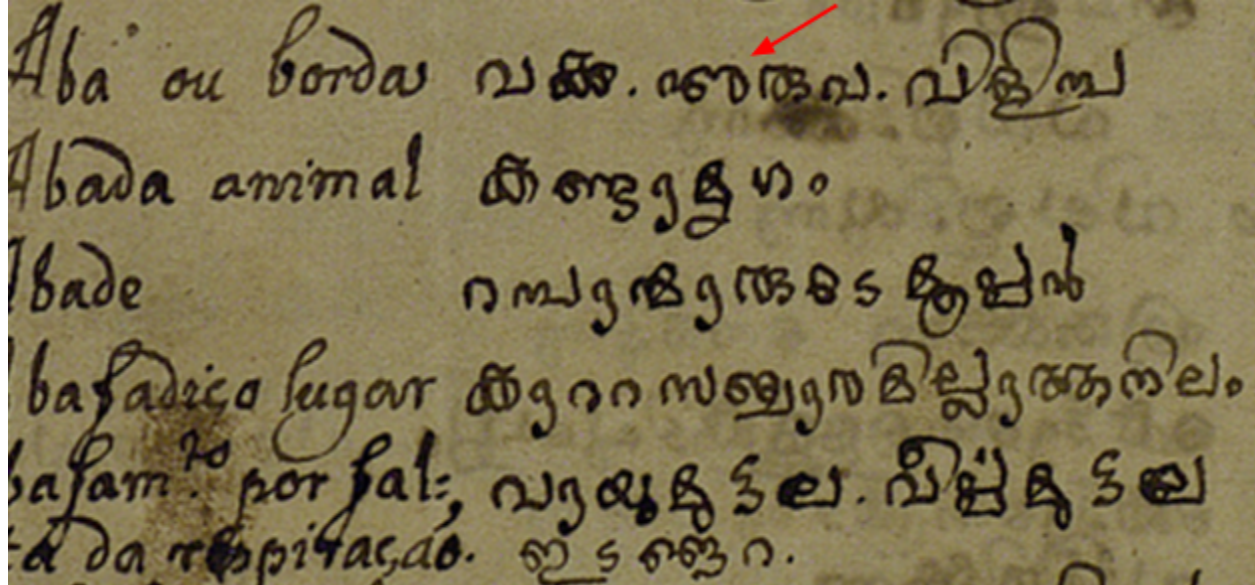 Aba ou borda വക്ക . അരുവ . വിളിമ്പ
Abada animal കണ്ടാമൃഗം
Abade റമ്പാന്മാരുടെ മൂപ്പൻ
bafadiço lugar കാററ സഞ്ചാരമില്ലാത്തനിലം
bafam.to por fal= വായുമുട്ടല . വീർപ്പമുട്ടല
ta da respiração.